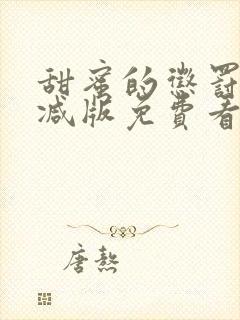 甜蜜的懲罰
减版免費看
唐熬